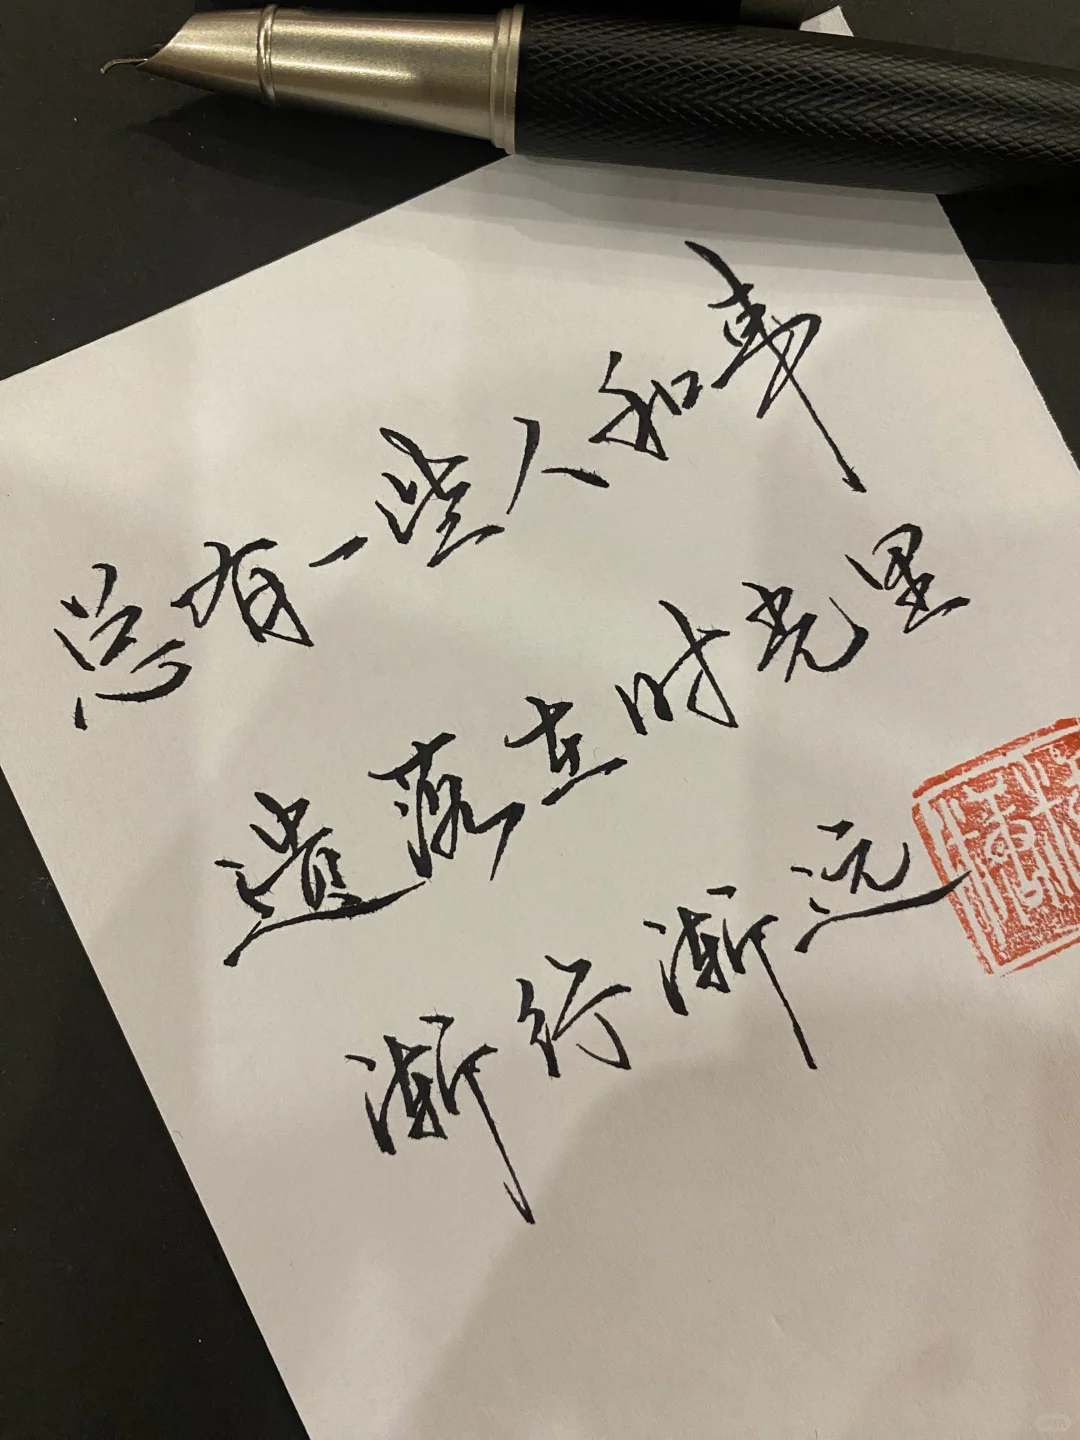 总有一些人和事
遗落在时光里
渐行渐远